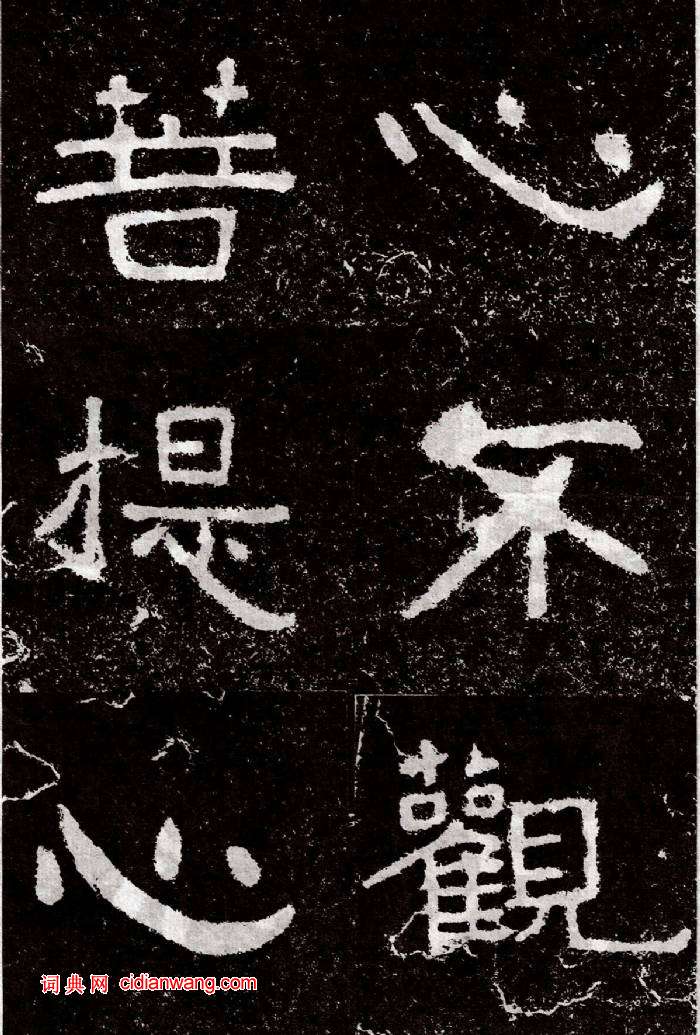 心不觀
菩提心
词典网 cidianwang.com